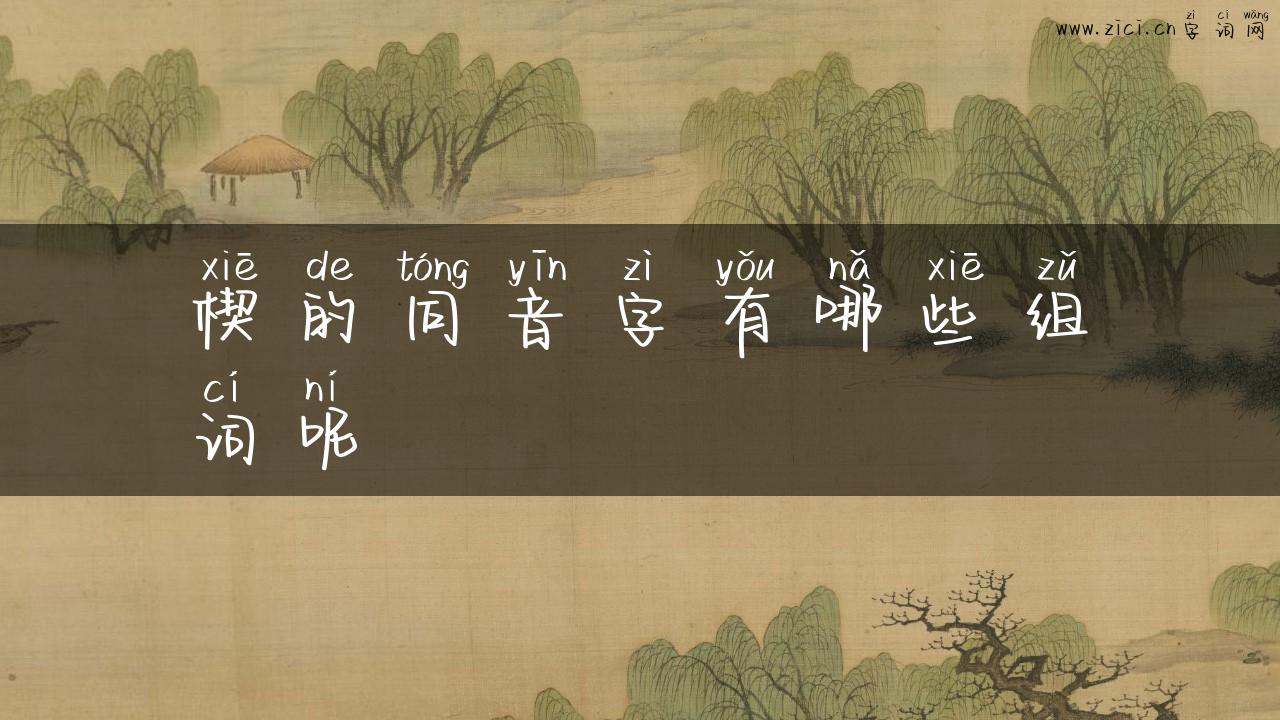 zì cí wǎng
www.zici.cn 字 词 网
xiē de tóng yīn zì yǒu nǎ xiē zǔ
楔 的 同 音 字 有 哪 些 组
cí ní
词 呢